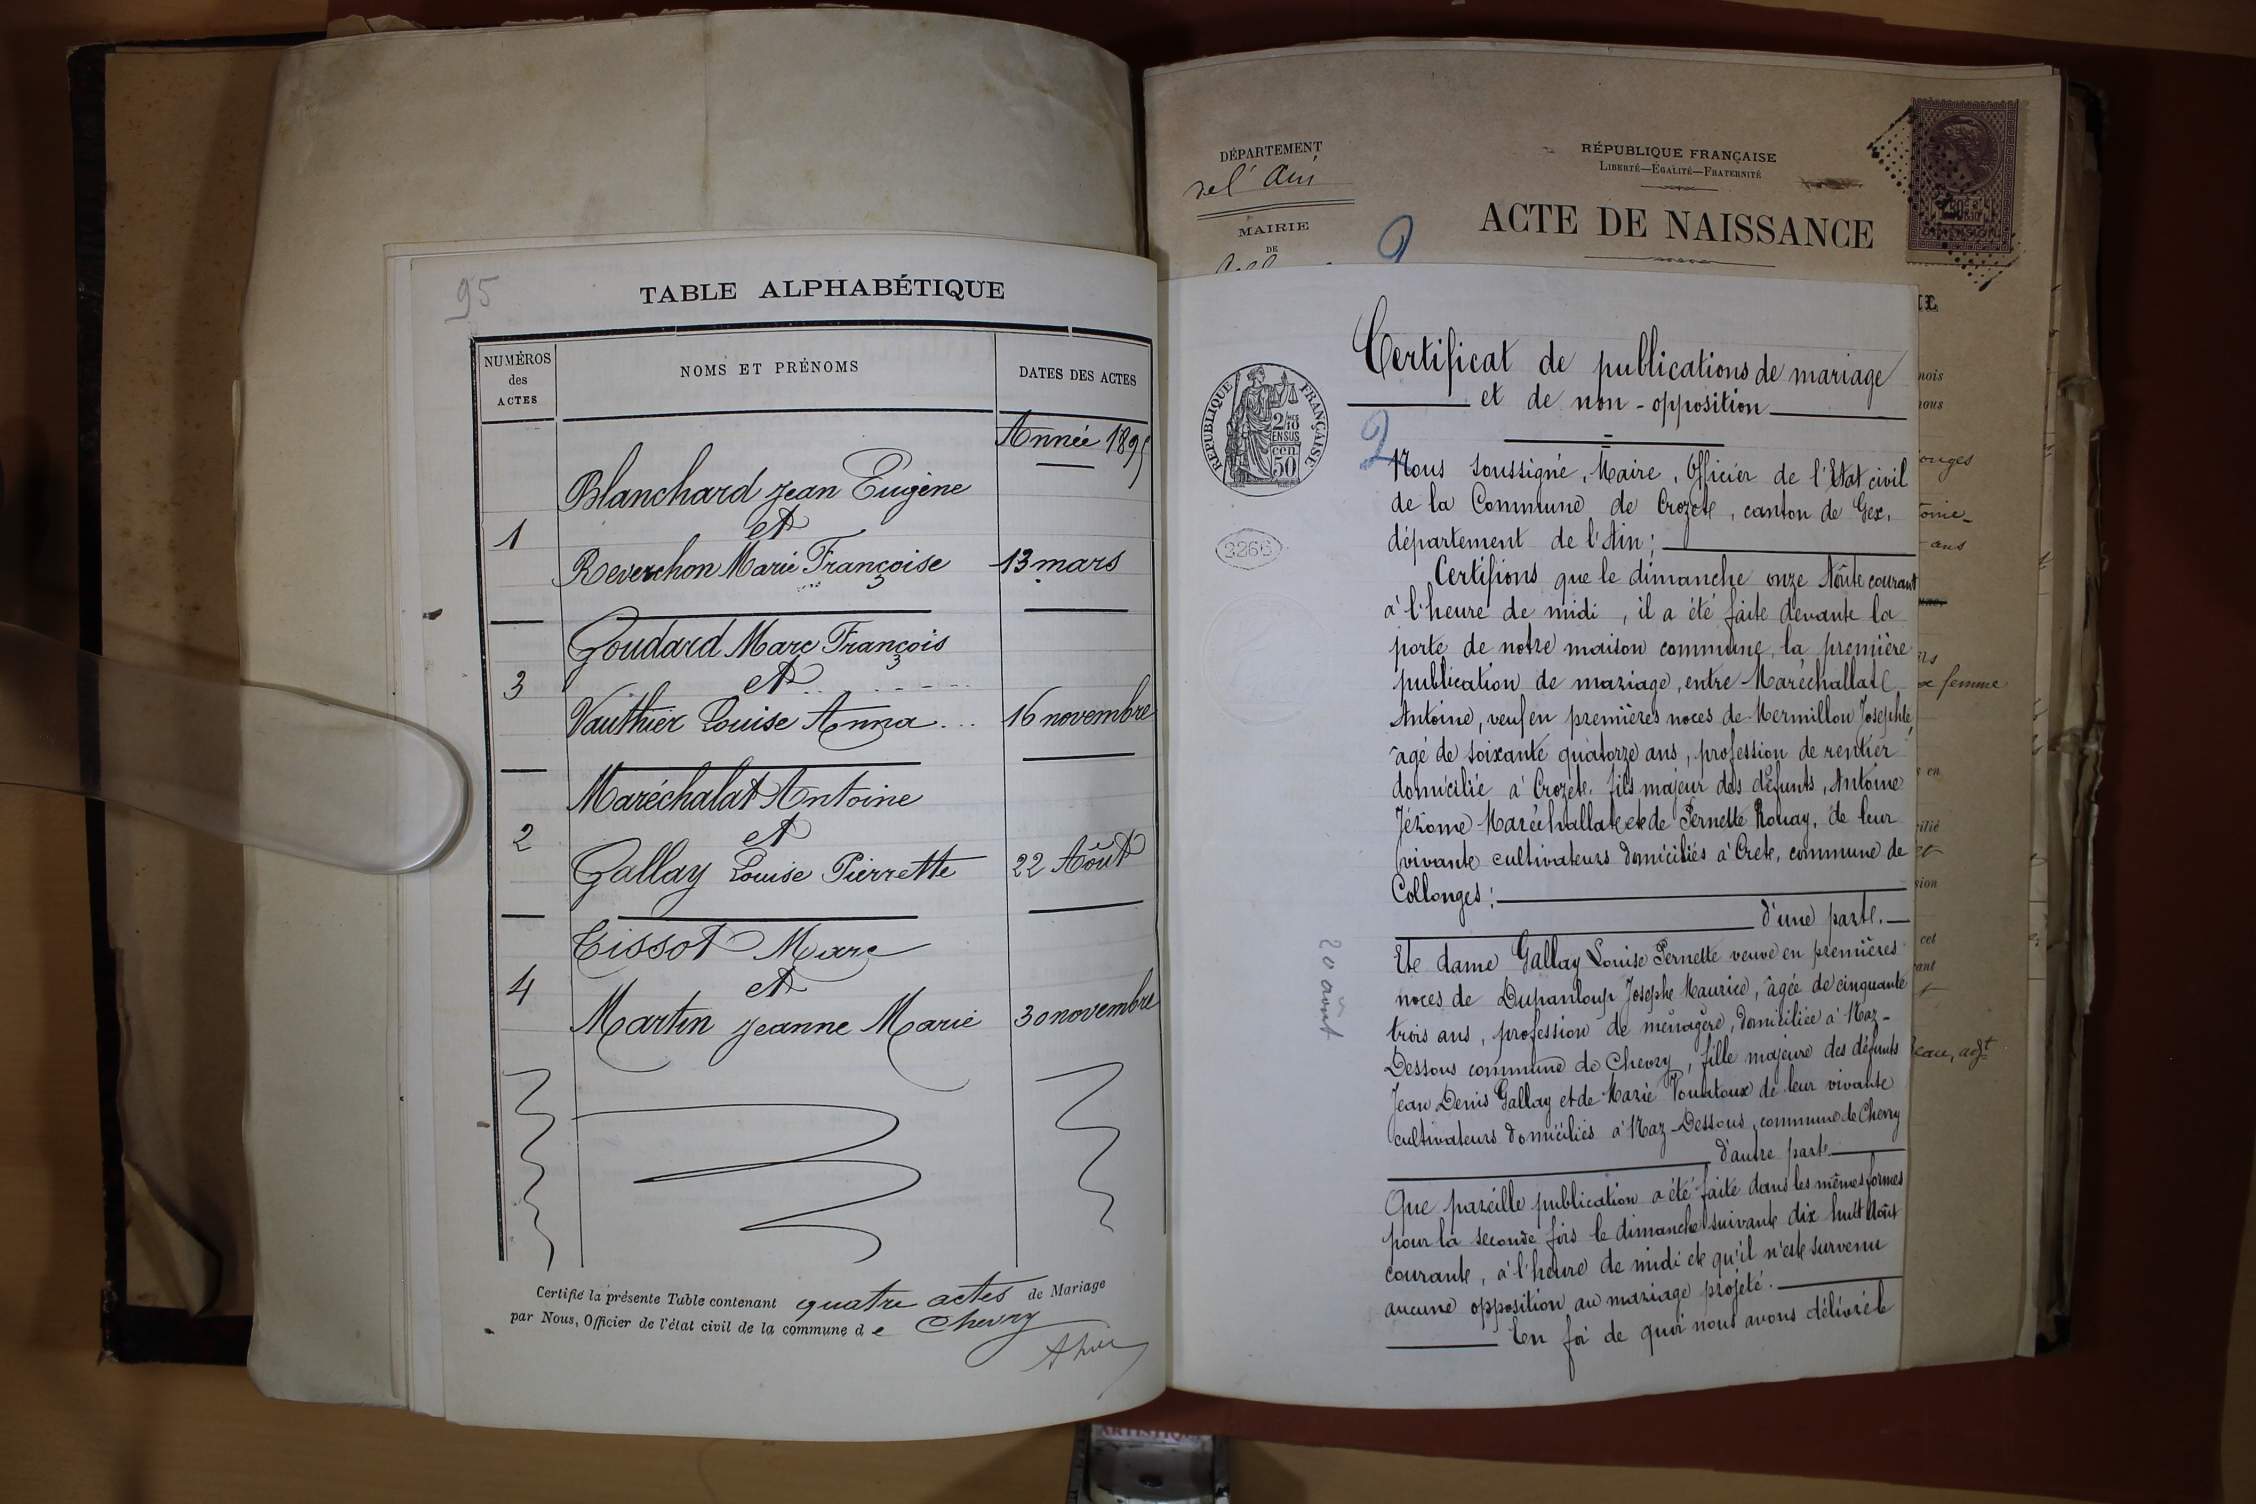 95
TABLE ALPHABÉTIQUE
NUMÉROS
des
ACTES
NOMS ET PRÉNOMS
DATES DES ACTES
Année 1895
Blanchard Jean Eugène
et
1
Reverchon Marie Françoise 13 mars
Goudard Marc François
et
3
Vauthier Louise Anna 16 novembre
Maréchalat Antoine
et
2
Gallay Louise Pierrette 22 Août
Tissot Marc
et
4
Martin Jeanne Marie 30 novembre
Certifié la présente Table contenant quatre actes de Mariage
par Nous, Officier de l'état civil de la commune de Chevry
DÉPARTEMENT
de l'Ain
MAIRIE
DE
RÉPUBLIQUE FRANÇAISE
LIBERTÉ—ÉGALITÉ—FRATERNITÉ
ACTE DE NAISSANCE
2
Certificat de publications de mariage
et de non-opposition
RÉPUBLIQUE FRANÇAISE
2/10
EN SUS
50
2266
2
Nous soussigné, Maire, Officier de l'Etat civil
de la Commune de Crozet, canton de Gex,
département de l'Ain;
Certifions que le dimanche onze Août courant
à l'heure de midi, il a été faite devant la
porte de notre maison commune, la première
publication de mariage, entre Maréchallat
Antoine, veuf en premières noces de Mermillon Josephte,
âgé de soixante quatorze ans, profession de rentier
domicilié à Crozet, fils majeur des défunts, Antoine
Jérome Maréchallat et de Pernette Rouay, de leur
vivant cultivateurs domiciliés à Cret, commune de
Collonges;
d'une part.
Et dame Gallay Louise Pernette veuve en premières
noces de Dupanloup Joseph Maurice, âgée de cinquante
trois ans, profession de ménagère, domiciliée à Naz-
Dessous commune de Chevry, fille majeure des défunts
Jean Denis Gallay et de Marie de leur vivant
cultivateurs domiciliés à Naz-Dessous, commune de Chevry
d'autre part
Que pareille publication a été faite dans les mêmes formes
pour la seconde fois le dimanche suivant dix huit Août
courant, à l'heure de midi et qu'il n'est survenu
aucune opposition au mariage projeté.
En foi de quoi nous avons délivré le
20 août
mois
nous
ans
femme
cet